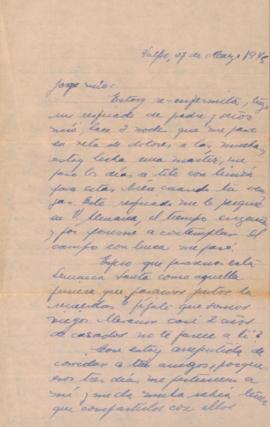 Valpo, 27 de Mayo 19
Jorge mío:
Estoy re-enfermita, tengo
un resfriado de padre y señor
mío, hace 3 noches que me paso
en vela de dolores a las muelas,
estoy hecha una mártir, me
paso los días a té con limón
para estar bien cuando tú ven
gas. Este resfriado me lo pegué
en V. Alemana, el tiempo
y por ponerme a contemplar el
campo con luna me pasó.
Espero que pasemos esta
Semana Santa como aquella
primera que pasamos juntos ¿la
recuerdas? fíjate que somos
viejos llevamos casi 2 años
de casados no te parece a ti?
Hoy estoy arrepentida de
convidar a tus amigos, porque
esos tres días me pertenecen a
mí y me da mucha rabia tener
que compartirlos con ellos